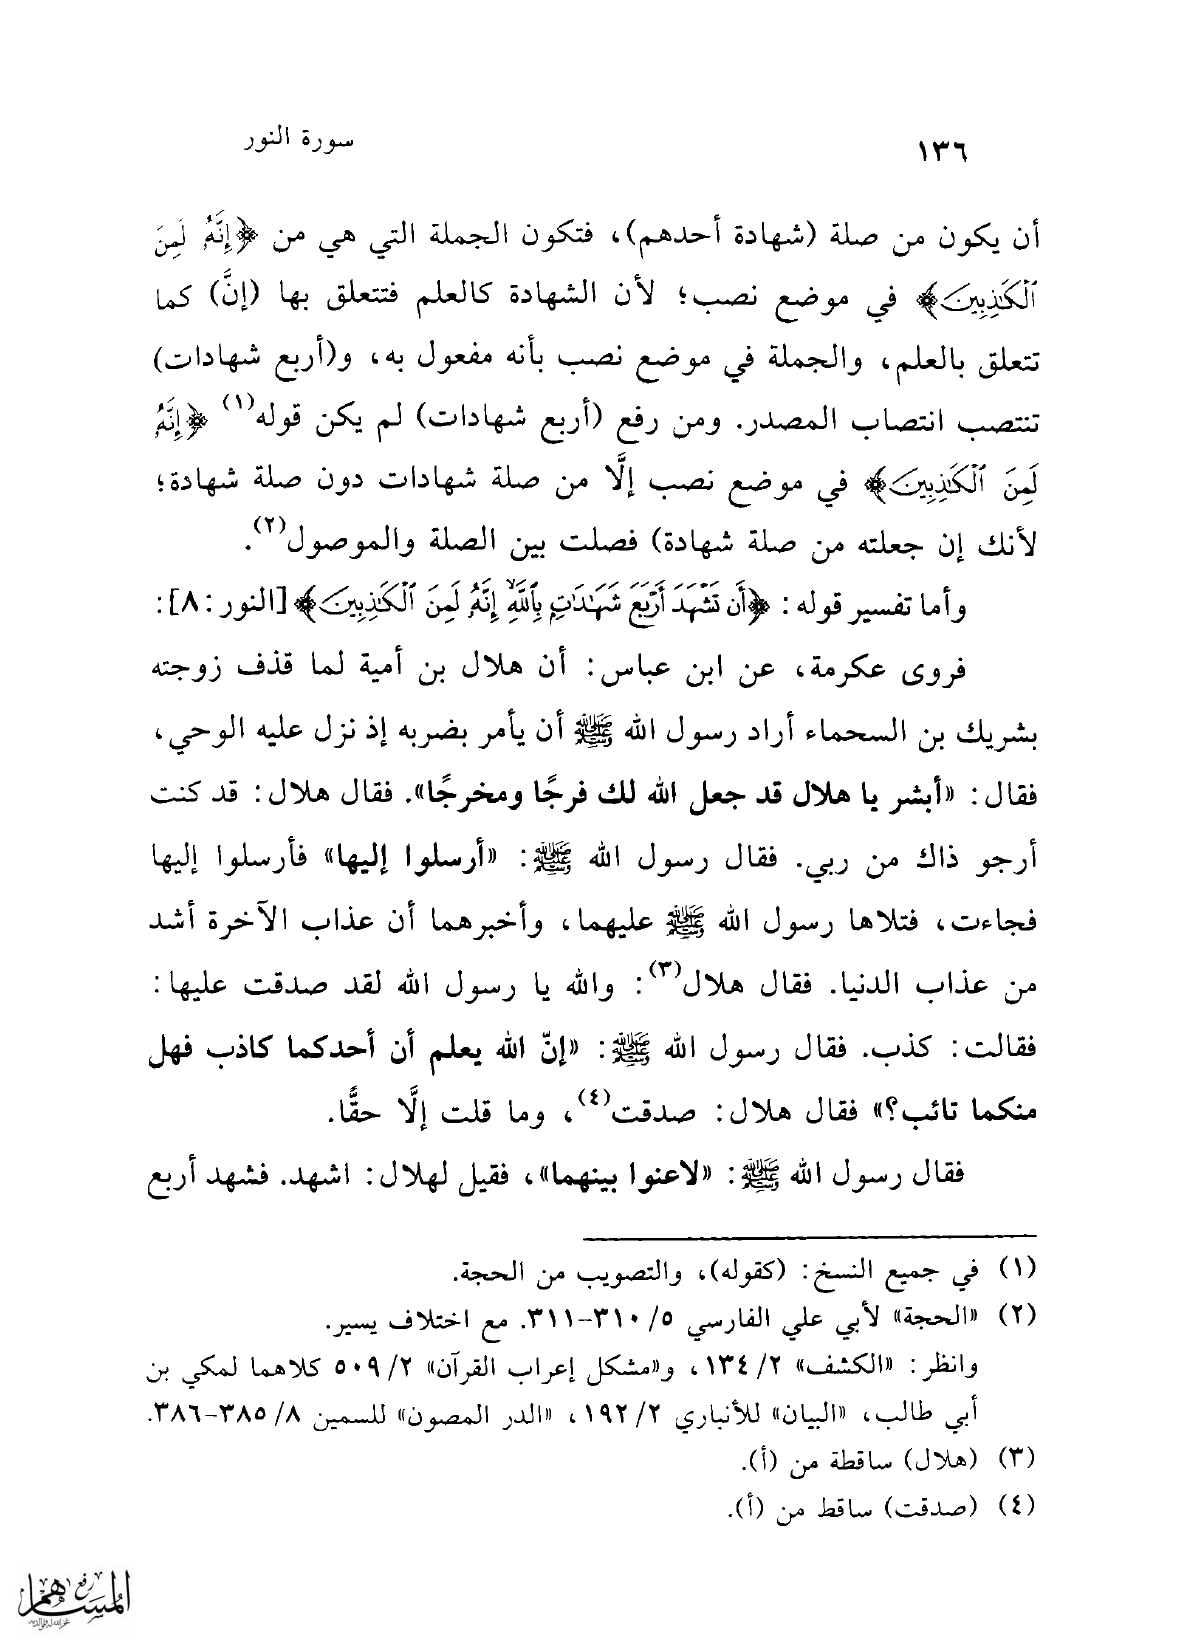 ١٣٦ سورة النور
أن يكون من صلة (شهادة أحدهم)، فتكون الجملة التي هي من ﴿إِنَّهُ لَمِنَ
ٱلْكَٰذِبِينَ﴾ في موضع نصب؛ لأن الشهادة كالعلم فتتعلق بها (إنَّ) كما
تتعلق بالعلم، والجملة في موضع نصب بأنه مفعول به، و(أربع شهادات)
تنتصب انتصاب المصدر. ومن رفع (أربع شهادات) لم يكن قوله(١) ﴿إِنَّهُ
لَمِنَ ٱلْكَٰذِبِينَ﴾ في موضع نصب إلَّا من صلة شهادات دون صلة شهادة؛
لأنك إن جعلته من صلة شهادة) فصلت بين الصلة والموصول(٢).
وأما تفسير قوله: ﴿أَن تَشْهَدَ أَرْبَعَ شَهَٰدَٰتٍۭ بِٱللَّهِ ۙ إِنَّهُۥ لَمِنَ ٱلْكَٰذِبِينَ﴾ [النور: ٨]:
فروى عكرمة، عن ابن عباس: أن هلال بن أمية لما قذف زوجته
بشريك بن السحماء أراد رسول الله ﷺ أن يأمر بضربه إذ نزل عليه الوحي،
فقال: «أبشر يا هلال قد جعل الله لك فرجًا ومخرجًا». فقال هلال: قد كنت
أرجو ذاك من ربي. فقال رسول الله ﷺ: «أرسلوا إليها» فأرسلوا إليها
فجاءت، فتلاها رسول الله ﷺ عليهما، وأخبرهما أن عذاب الآخرة أشد
من عذاب الدنيا. فقال هلال(٣): والله يا رسول الله لقد صدقت عليها:
فقالت: كذب. فقال رسول الله ﷺ: «إنّ الله يعلم أن أحدكما كاذب فهل
منكما تائب؟» فقال هلال: صدقت(٤)، وما قلت إلَّا حقًّا.
فقال رسول الله ﷺ: «لاعنوا بينهما»، فقيل لهلال: اشهد. فشهد أربع
(١) في جميع النسخ: (كقوله)، والتصويب من الحجة.
(٢) «الحجة» لأبي علي الفارسي ٥/ ٣١٠-٣١١. مع اختلاف يسير.
وانظر: «الكشف» ٢/ ١٣٤، و«مشكل إعراب القرآن» ٢/ ٥٠٩ كلاهما لمكي بن
أبي طالب، «البيان» للأنباري ٢/ ١٩٢، «الدر المصون» للسمين ٨/ ٣٨٥-٣٨٦.
(٣) (هلال) ساقطة من (أ).
(٤) (صدقت) ساقط من (أ).